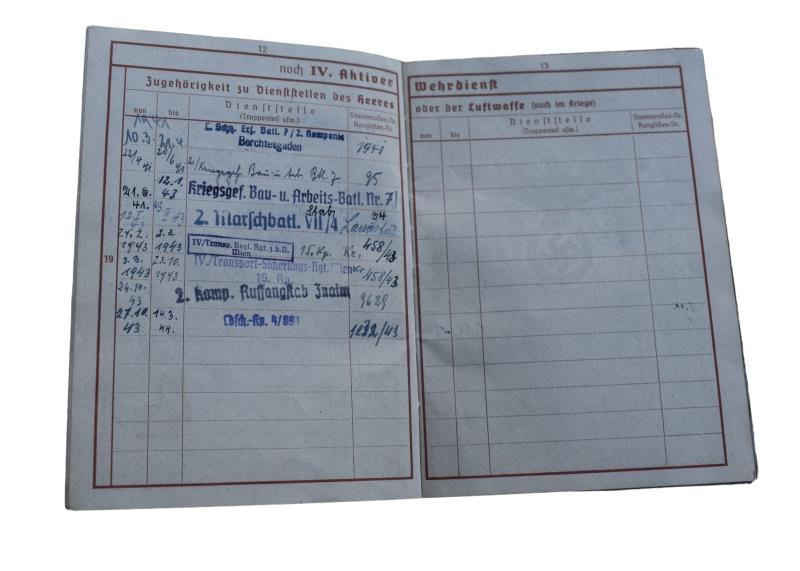 12
noch IV. Aktiver
Zugehörigkeit zu Dienststellen des Heeres
von
bis
Dienststelle
(Truppenteil usw.)
Stammrollen-Nr.
Ranglisten-Nr.
1941
10.3. 21.4.
L. Sch. Ers. Batl. 7 / 2. Kompanie
Berchtesgaden
22/4 41 20/6 41
2/Kriegsgef. Bau-u. Arb. Btl. 7
95
21.6. 41 12.1. 43
Kriegsgef. Bau- u. Arbeits-Batl. Nr. 7
Stab
2. Marschbatl. VII/4
24.2. 1943 2.8. 1943
IV/Transp. Begl. Rgt. z.b.V.
Wien
15. Kp.
458/43
19
3.8. 1943 23.10. 1943
IV./Transport-Sicherungs-Rgt. Wien
15. Kp.
458/43
24.10. 43
2. Komp. Auffangstab Znaim
9629
27.10. 43 14.3. 44.
Ldsch.-Kp. 4/891
1232/43
13
Wehrdienst
oder der Luftwaffe (auch im Kriege)
von
bis
Dienststelle
(Truppenteil usw.)
Stammrollen-Nr.
Ranglisten-Nr.